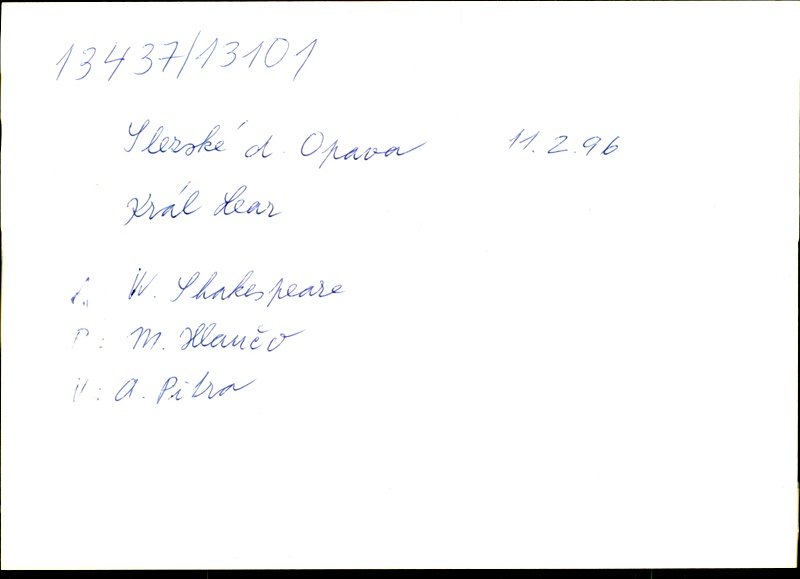 13437/13101
Slezské d. Opava 11.2.96
Král Lear
W. Shakespeare
M. Hlaučo
A. Pitra